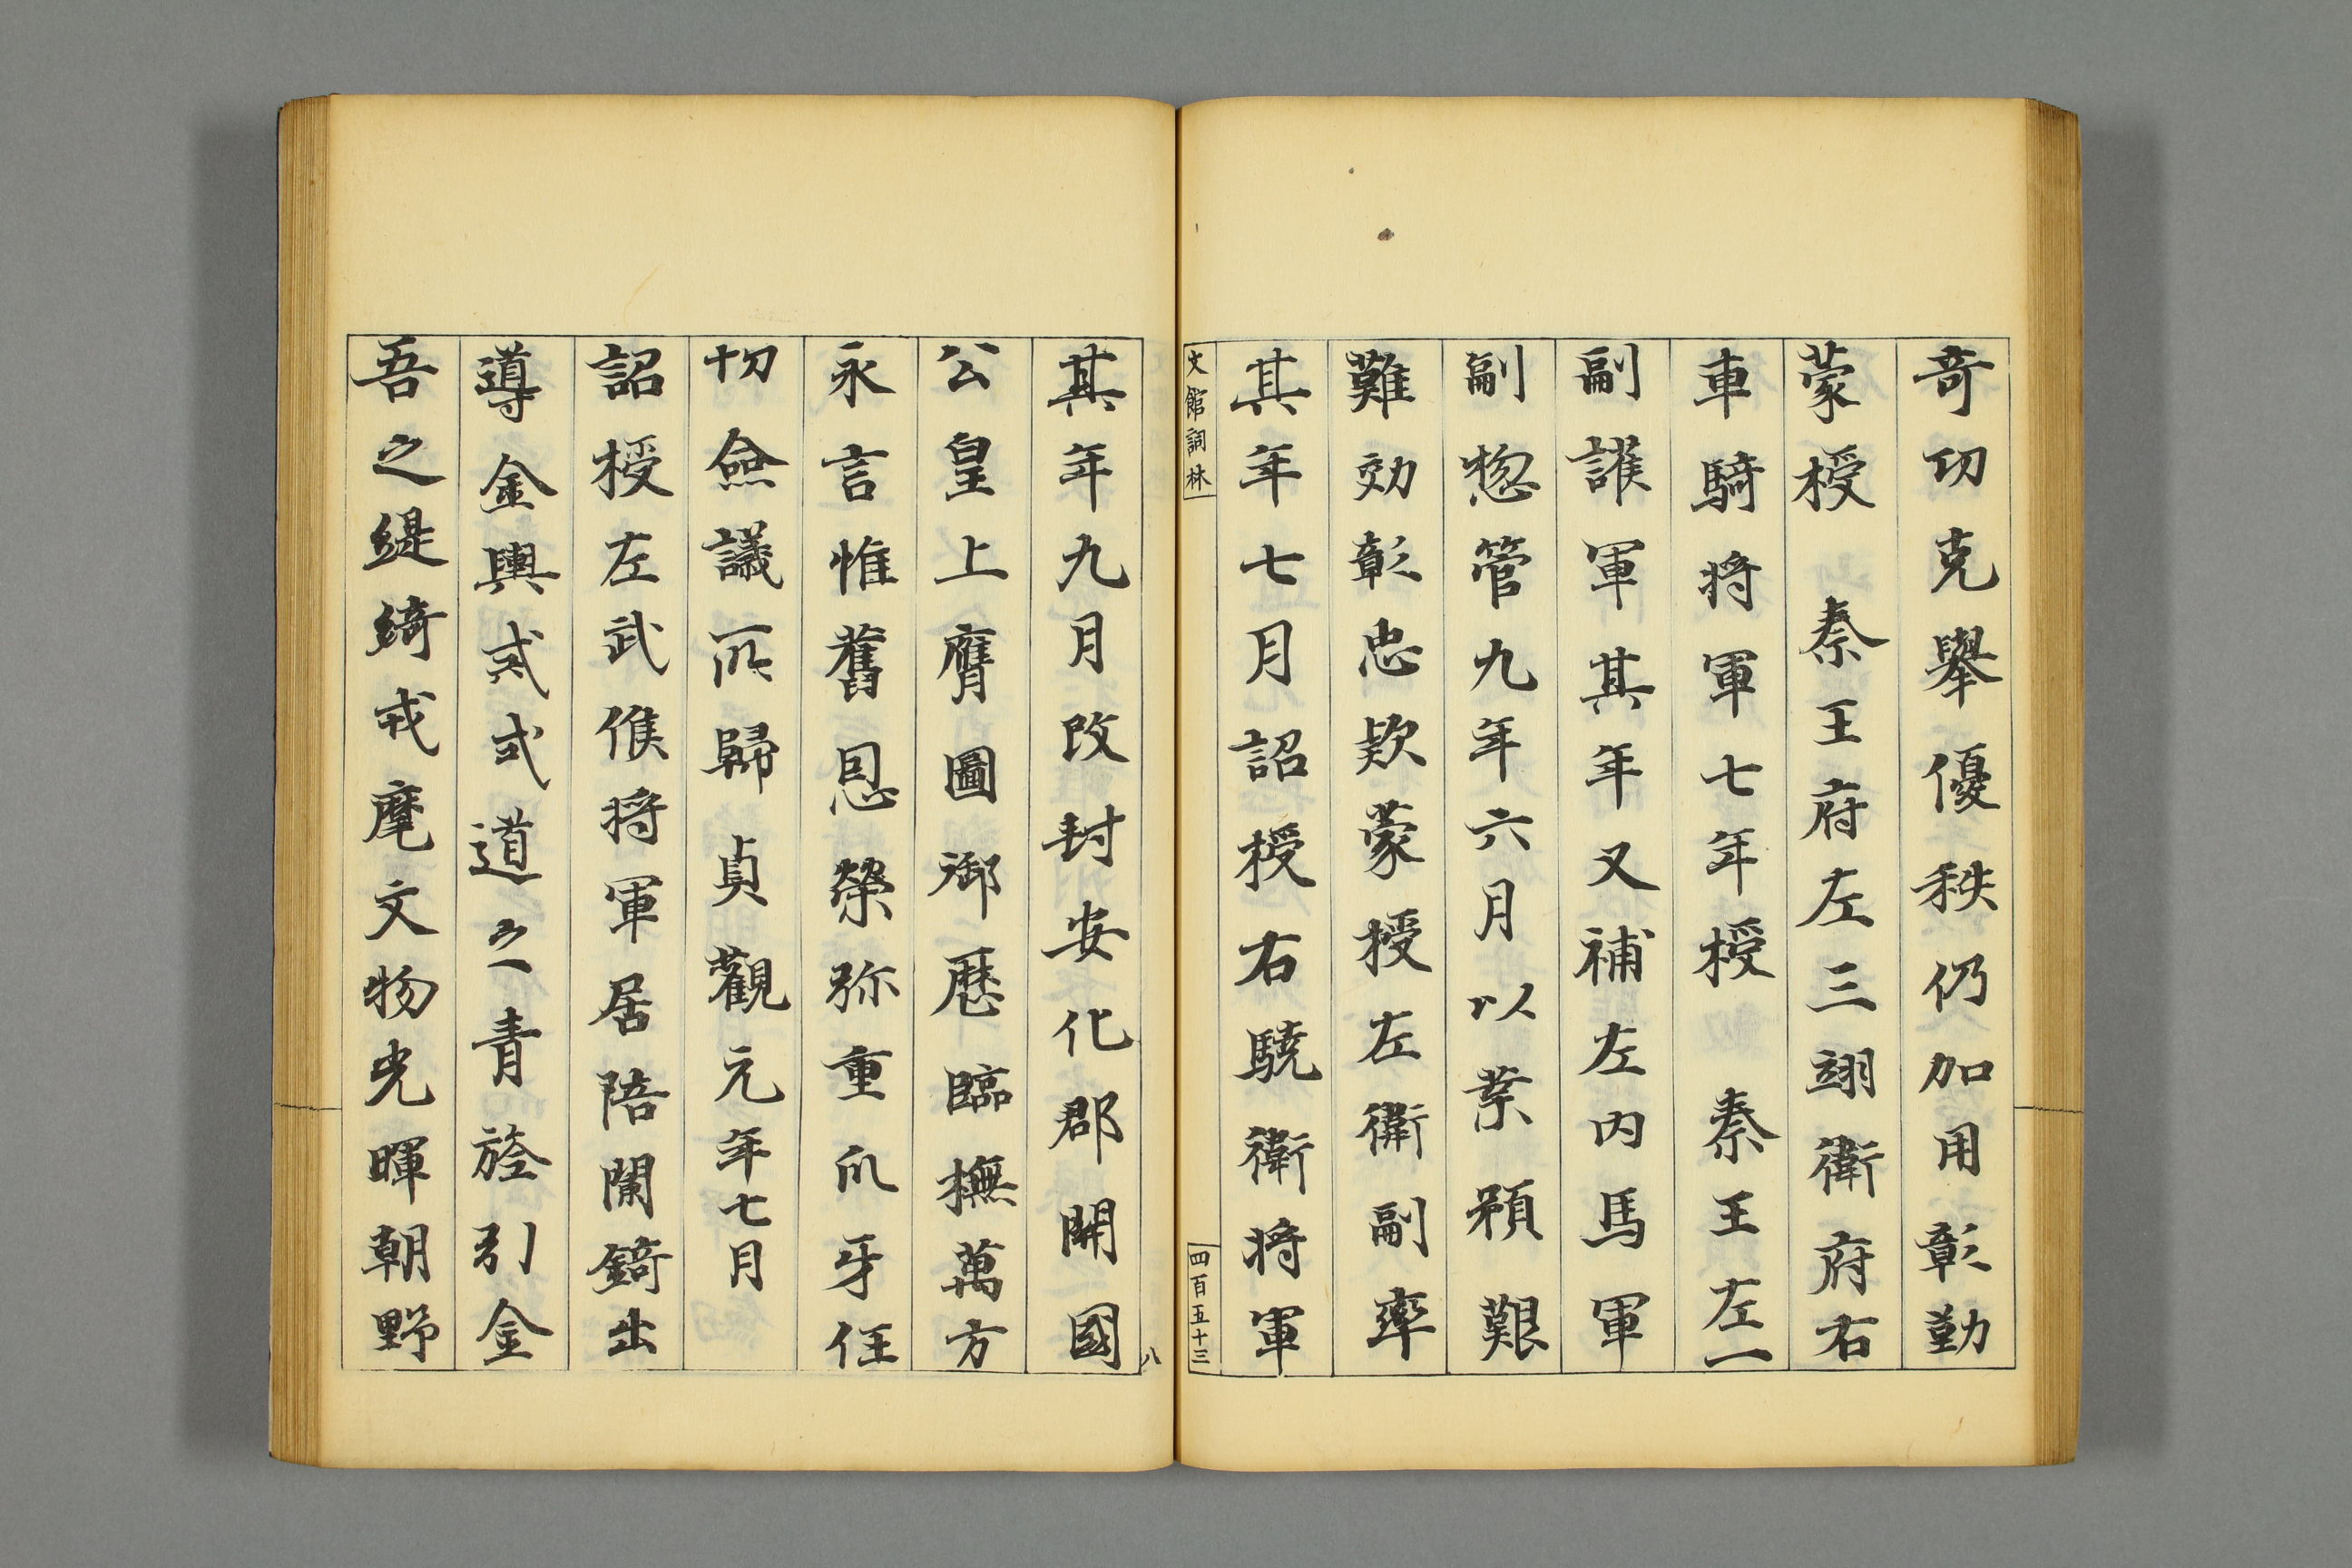 奇功克舉優秩仍加用彰勤
蒙授 秦王府左三翊衛府右
車騎將軍七年授 秦王左一
副護軍其年又補左内馬軍
副惣管九年六月以業預艱
難効彰忠款蒙授左衛副率
其年七月詔授右驍衛將軍
文館詞林
四百五十三
八
其年九月改封安化郡開國
公皇上膺圖御曆臨撫萬方
永言惟舊恩榮弥重爪牙任
切僉議所歸 貞觀元年七月
詔授左武候將軍居陪闌錡出
導金輿貳貳道之青旌引金
吾之緹綺戎麾文物光暉朝野